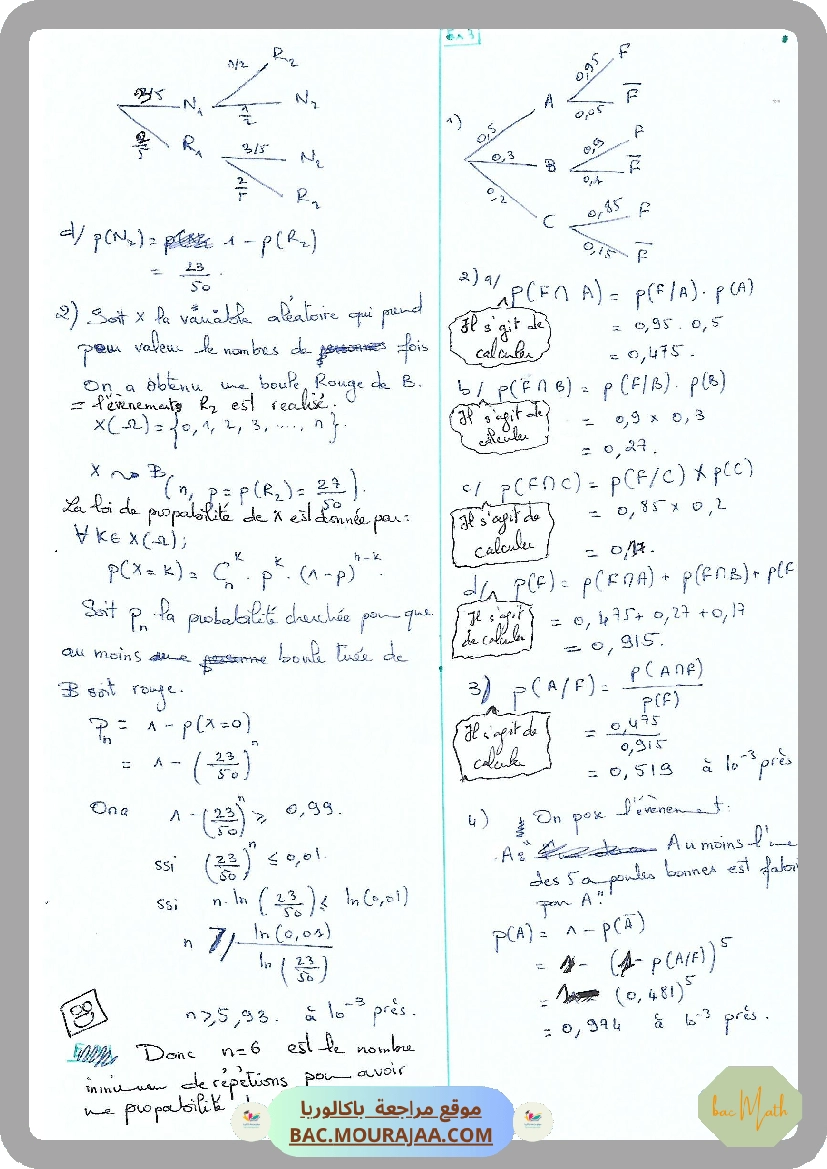 1/2 R₂
3/5 N₁ 1/2 N₂
2/5 R₁ 3/5 N₂
2/5 R₂
d/ p(N₂) = 1 - p(R₂)
= 23/50.
2) Soit X la variable aléatoire qui prend
pour valeur le nombres de fois
On a obtenu une boule Rouge de B.
= l'évènement R₂ est realisé.
X(Ω) = {0, 1, 2, 3, ...., n}.
X ~> B(n, p = p(R₂) = 27/50).
La loi de propabilité de X est donnée par:
∀ K ∈ X(Ω);
p(X = k) = Cₙᵏ . pᵏ . (1-p)ⁿ⁻ᵏ.
Soit pₙ la probabilité cherchée pour que
au moins boule tirée de
B soit rouge.
Pₙ = 1 - p(X=0)
= 1 - (23/50)ⁿ
On a 1 - (23/50)ⁿ ≥ 0,99.
ssi (23/50)ⁿ ≤ 0,01.
ssi n.ln(23/50) ≤ ln(0,01)
n ≥ ln(0,01) / ln(23/50)
n ≥ 5,93. à 10⁻³ prés.
Donc n=6 est le nombre
de répétions pour avoir
une propabilité
Ex 3
1)
0,95 F
0,5 A 0,05 F̄
0,9 F
0,3 B 0,1 F̄
0,2 C 0,85 F
0,15 F̄
2) a/ p(F∩A) = p(F/A) . p(A)
Il s'agit de calculer
= 0,95 . 0,5
= 0,475.
b/ p(F∩B) = p(F/B) . p(B)
Il s'agit de calculer
= 0,9 x 0,3
= 0,27.
c/ p(F∩C) = p(F/C) x p(C)
Il s'agit de calculer
= 0,85 x 0,2
= 0,17.
d/ p(F) = p(F∩A) + p(F∩B) + p(F
Il s'agit de calculer
= 0,475 + 0,27 + 0,17
= 0,915.
3) p(A/F) = p(A∩F) / p(F)
Il s'agit de calculer
= 0,475 / 0,915
= 0,519 à 10⁻³ prés
4) On pose l'évènement:
A: " Au moins l'une
des 5 bonnes est
par A."
p(A) = 1 - p(Ā)
= 1 - (1 - p(A/F))⁵
= 1 - (0,481)⁵
= 0,974 à 10⁻³ prés.
موقع مراجعة باكالوريا
BAC.MOURAJAA.COM
bac Math